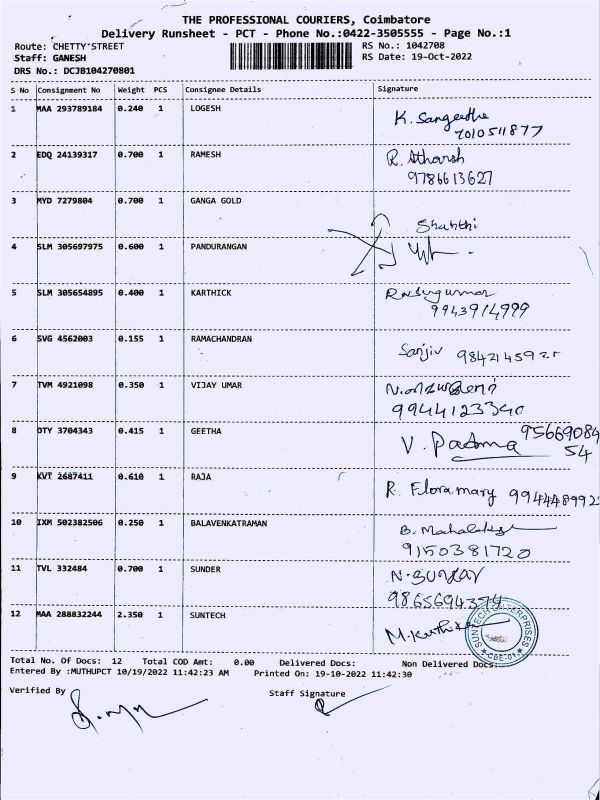 THE PROFESSIONAL COURIERS, Coimbatore
Delivery Runsheet - PCT - Phone No.:0422-3505555 - Page No.:1
Route: CHETTY'STREET RS No.: 1042708
Staff: GANESH RS Date: 19-Oct-2022
DRS No.: DCJB104270801
S No Consignment No Weight PCS Consignee Details Signature
1 MAA 293789184 0.240 1 LOGESH K. Sangeetha
7010511877
2 EDQ 24139317 0.700 1 RAMESH R. Atharsh
9786613627
3 MYD 7279804 0.700 1 GANGA GOLD Shanthi
4 SLM 305697975 0.600 1 PANDURANGAN
5 SLM 305654895 0.400 1 KARTHICK
9943914999
6 SVG 4562003 0.155 1 RAMACHANDRAN Sanjiv
7 TVM 4921098 0.350 1 VIJAY UMAR
9944123340
8 OTY 3704343 0.415 1 GEETHA V. Padma 95669084
54
9 KVT 2687411 0.610 1 RAJA R. Flora mary 994448992
10 IXM 502382506 0.250 1 BALAVENKATRAMAN
9150381720
11 TVL 332484 0.700 1 SUNDER N. SUNDAR
9865694374
12 MAA 288832244 2.350 1 SUNTECH SUNTECH ENTERPRISES
CBE-01
Total No. Of Docs: 12 Total COD Amt: 0.00 Delivered Docs: Non Delivered Docs:
Entered By :MUTHUPCT 10/19/2022 11:42:23 AM Printed On: 19-10-2022 11:42:30
Verified By Staff Signature